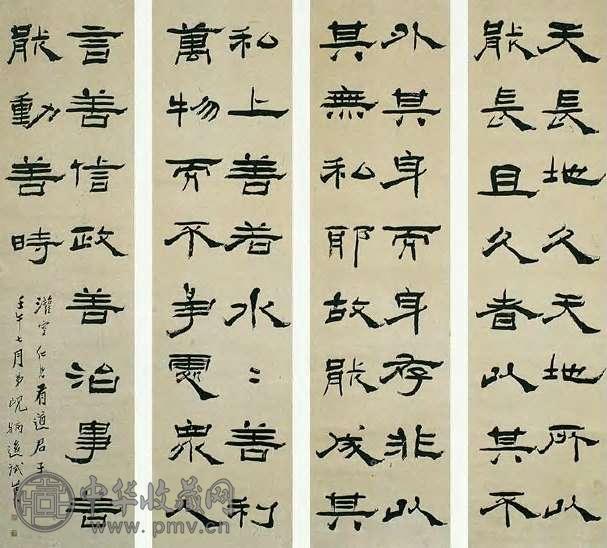 天長地久天地所以
能長且久者以其不
外其身而身存非以
其無私耶故能成其
私上善若水〻善利
萬物而不爭處眾人
言善信政善治事善
能動善時
仁台有道
壬午七月弟
中华收藏网
www.pmv.cn